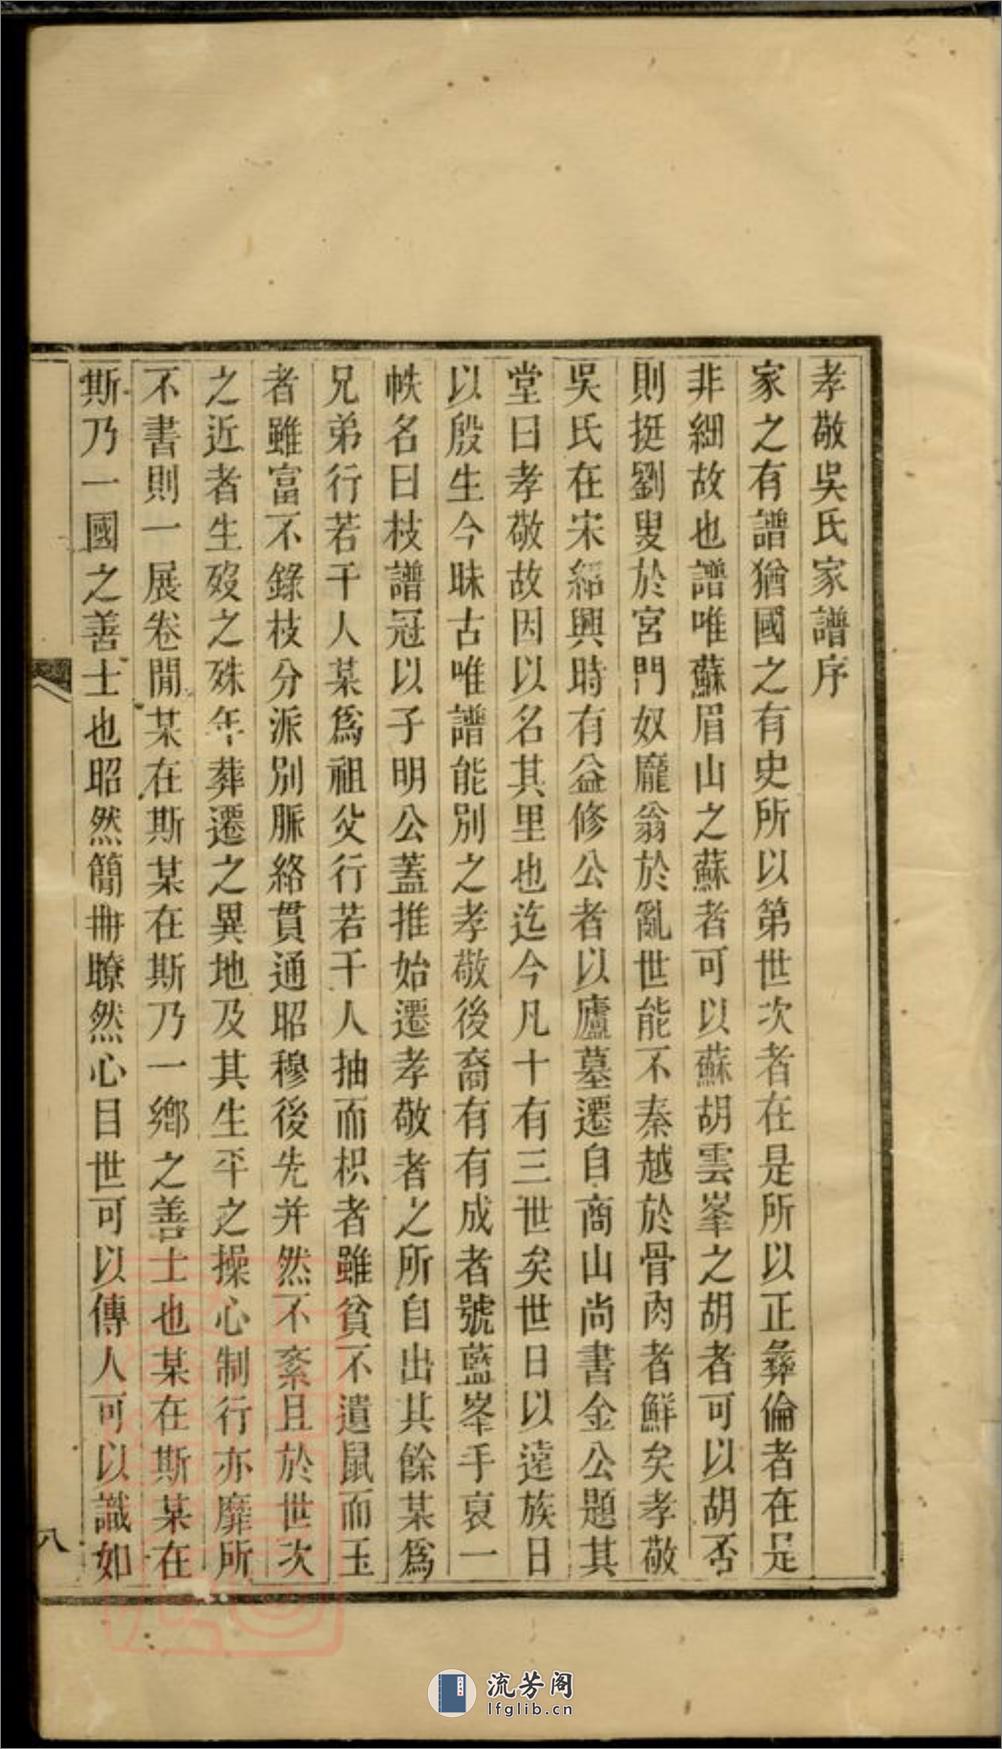 孝敬吳氏家譜序
家之有譜猶國之有史所以第世次者在是所以正彝倫者在是
非細故也譜唯蘇眉山之蘇者可以蘇胡雲峯之胡者可以胡否
則挺劉叟於宮門奴龐翁於亂世能不秦越於骨肉者鮮矣孝敬
吳氏在宋紹興時有益修公者以廬墓遷自商山尚書金公題其
堂曰孝敬故因以名其里也迄今凡十有三世矣世日以遠族日
以殷生今昧古唯譜能別之孝敬後裔有有成者號藍峯手裒一
帙名曰枝譜冠以子明公蓋推始遷孝敬者之所自出其餘某爲
兄弟行若干人某爲祖父行若干人抽而枳者雖貧不遺鼠而玉
者雖富不錄枝分派別脈絡貫通昭穆後先井然不紊且於世次
之近者生歿之殊年葬遷之異地及其生平之操心制行亦靡所
不書則一展卷閒某在斯某在斯乃一鄉之善士也某在斯某在
斯乃一國之善士也昭然簡冊瞭然心目世可以傳人可以識如
八
流芳阁
lfglib.cn